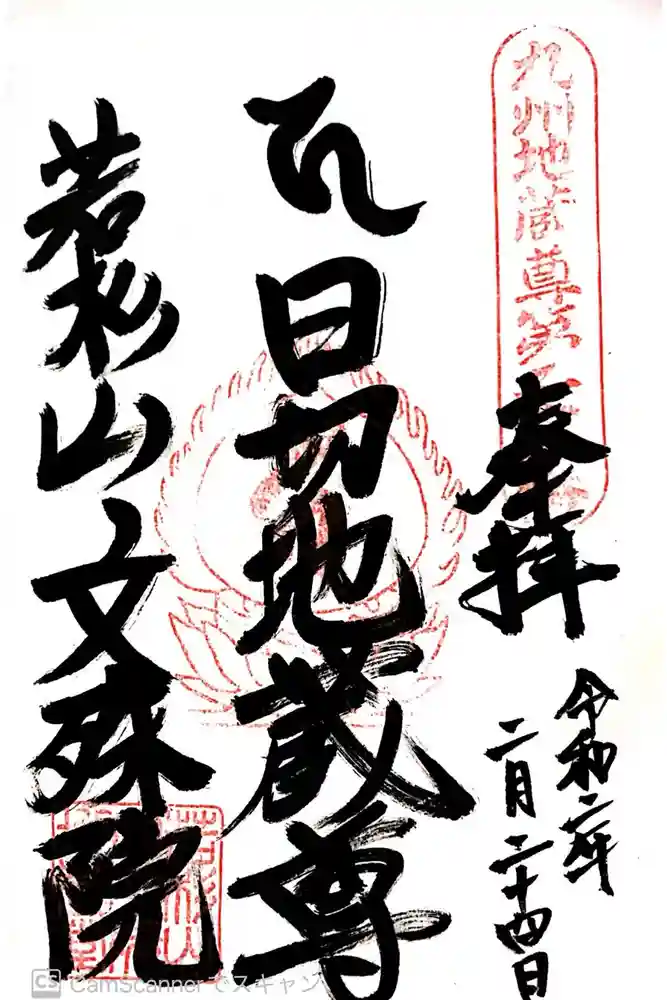 九州地蔵尊第
奉拝
令和二年
二月二十四日
日切地蔵尊
若杉山文殊院
CS CamScannerでスキャン